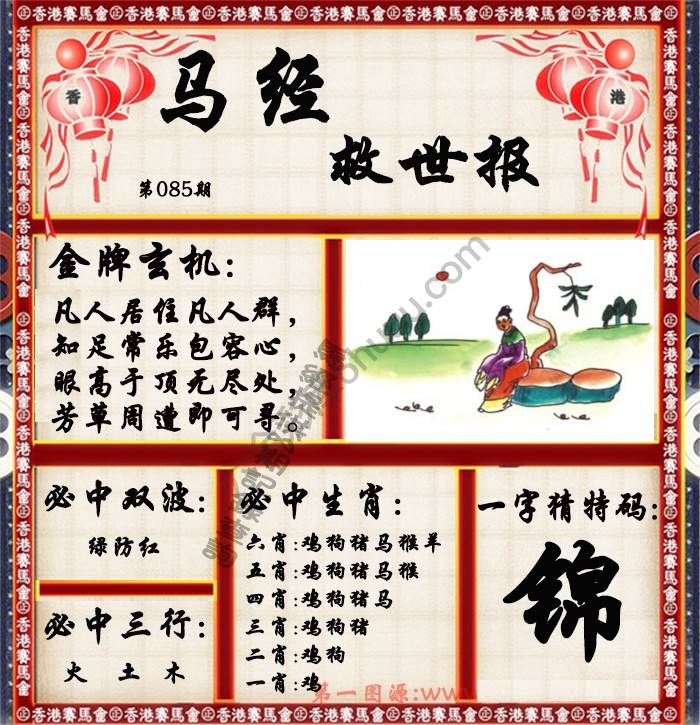 香港賽馬會
香 港
马经
救世报
第085期
金牌玄机：
凡人居住凡人群，
知足常乐包容心，
眼高于顶无尽处，
芳草周遭即可寻。
必中双波：
绿防红
必中三行：
火 土 木
必中生肖：
六肖:鸡狗猪马猴羊
五肖:鸡狗猪马猴
四肖:鸡狗猪马
三肖:鸡狗猪
二肖:鸡狗
一肖:鸡
一字猜特码：
锦
第一图源:www